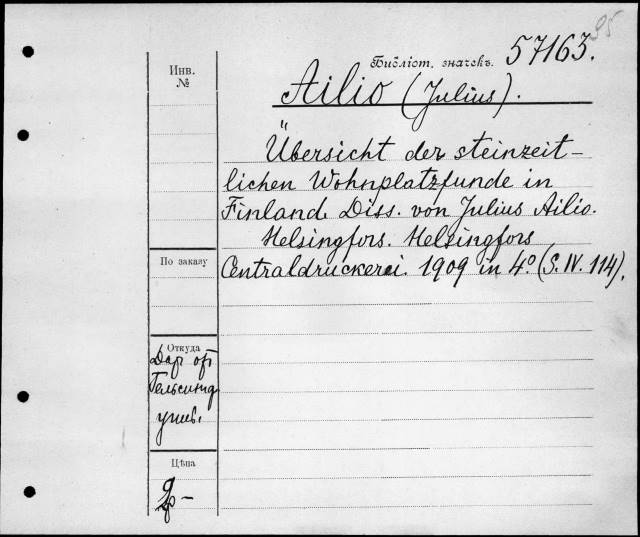 95
Библіот. значекъ. 57163.
Инв.
№
Ailio (Julius).
Übersicht der steinzeit-
lichen Wohnplatzfunde in
Finland. Diss. von Julius Ailio.
Helsingfors. Helsingfors
По заказу
Centraldruckerei. 1909 in 4° (S. IV. 114).
Откуда
Дар от
Гельсингф.
унив.
Цѣна